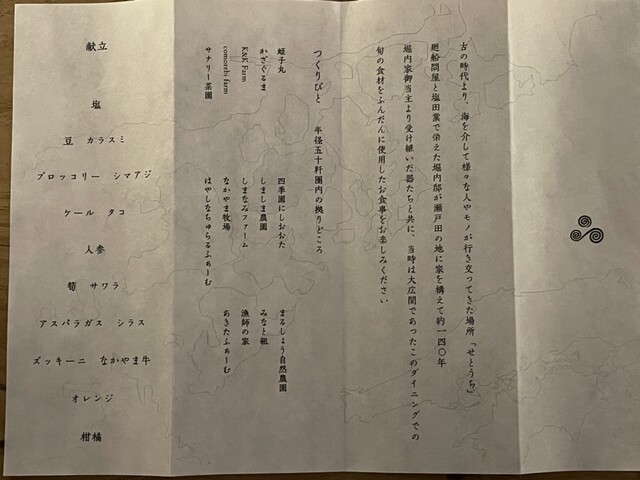 古の時代より、海を介して様々な人やモノが行き交ってきた場所「せとうち」
廻船問屋と塩田業で栄えた堀内邸が瀬戸田の地に家を構えて約一四〇年
堀内家御当主より受け継いだ器たちと共に、当時は大広間であったこのダイニングでの
旬の食材をふんだんに使用したお食事をお楽しみください
つくりびと 半径五十粁圏内の拠りどころ
蛭子丸 四季園にしおおた まるしょう自然農園
かざぐるま しましま農園 みなと組
K&K Farm しまなみファーム 漁師の家
comorebi farm なかやま牧場 あきたふぁーむ
サナリー菜園 はやしなちゅらるふぁーむ
献立
塩
豆 カラスミ
ブロッコリー シマアジ
ケール タコ
人参
筍 サワラ
アスパラガス シラス
ズッキーニ なかやま牛
オレンジ
柑橘